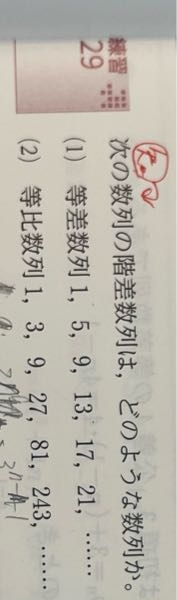 練習
29
次の数列の階差数列は，どのような数列か。
(1) 等差数列 1，5，9，13，17，21，……
(2) 等比数列 1，3，9，27，81，243，……